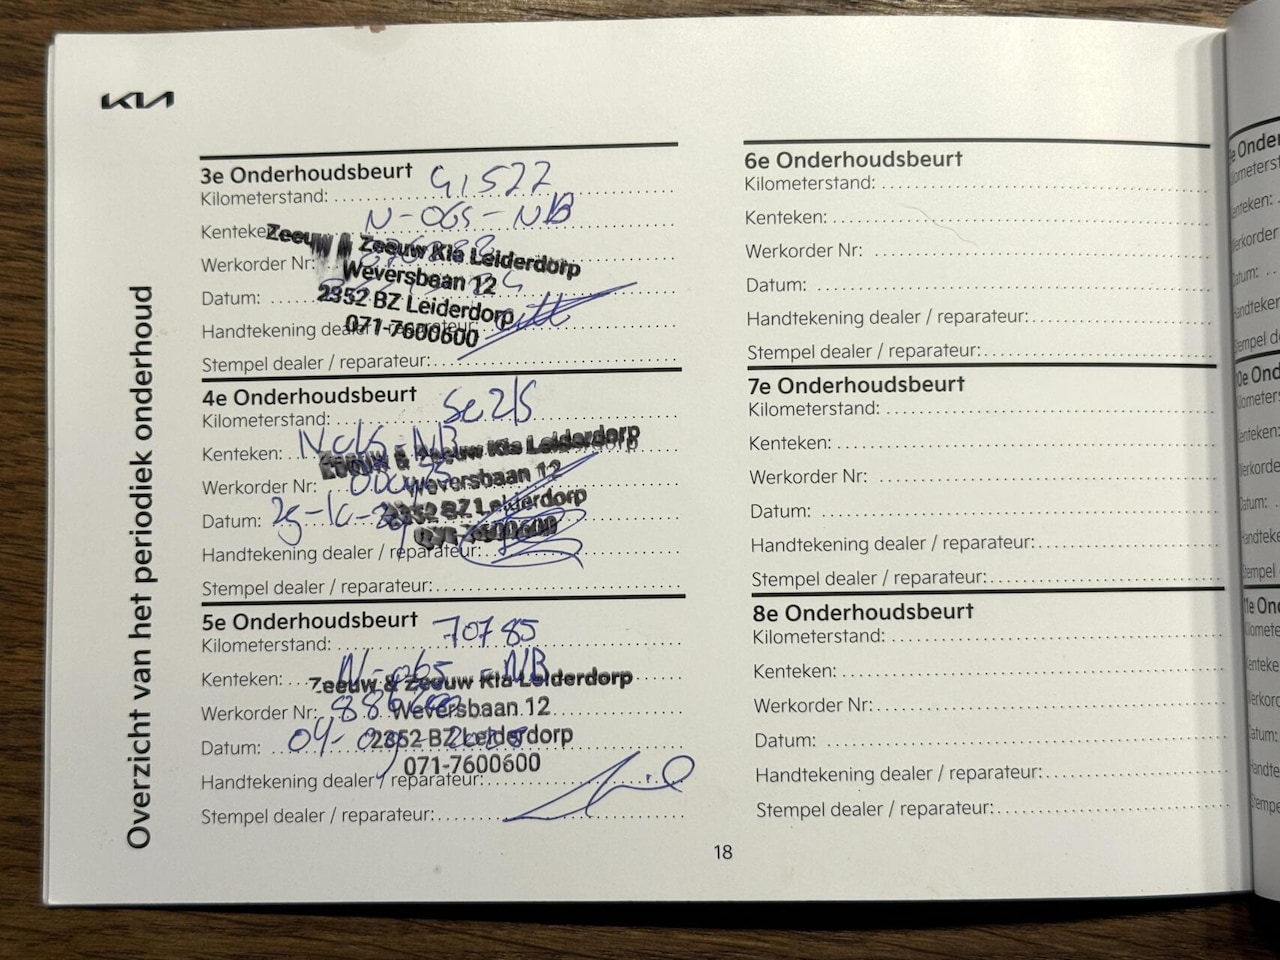 KIA
Overzicht van het periodiek onderhoud
3e Onderhoudsbeurt
Kilometerstand: 41522
Kenteken: N-065-NB
Werkorder Nr:
Datum:
Handtekening dealer / reparateur:
Stempel dealer / reparateur:
Zeeuw & Zeeuw Kia Leiderdorp
Weversbaan 12
2352 BZ Leiderdorp
071-7600600
4e Onderhoudsbeurt
Kilometerstand:
Kenteken: N065-NB
Werkorder Nr:
Datum:
Handtekening dealer / reparateur:
Stempel dealer / reparateur:
Zeeuw & Zeeuw Kia Leiderdorp
Weversbaan 12
2352 BZ Leiderdorp
071-7600600
5e Onderhoudsbeurt
Kilometerstand: 70785
Kenteken: N-065-NB
Werkorder Nr:
Datum:
Handtekening dealer / reparateur:
Stempel dealer / reparateur:
Zeeuw & Zeeuw Kia Leiderdorp
Weversbaan 12
2352 BZ Leiderdorp
071-7600600
6e Onderhoudsbeurt
Kilometerstand:
Kenteken:
Werkorder Nr:
Datum:
Handtekening dealer / reparateur:
Stempel dealer / reparateur:
7e Onderhoudsbeurt
Kilometerstand:
Kenteken:
Werkorder Nr:
Datum:
Handtekening dealer / reparateur:
Stempel dealer / reparateur:
8e Onderhoudsbeurt
Kilometerstand:
Kenteken:
Werkorder Nr:
Datum:
Handtekening dealer / reparateur:
Stempel dealer / reparateur:
18